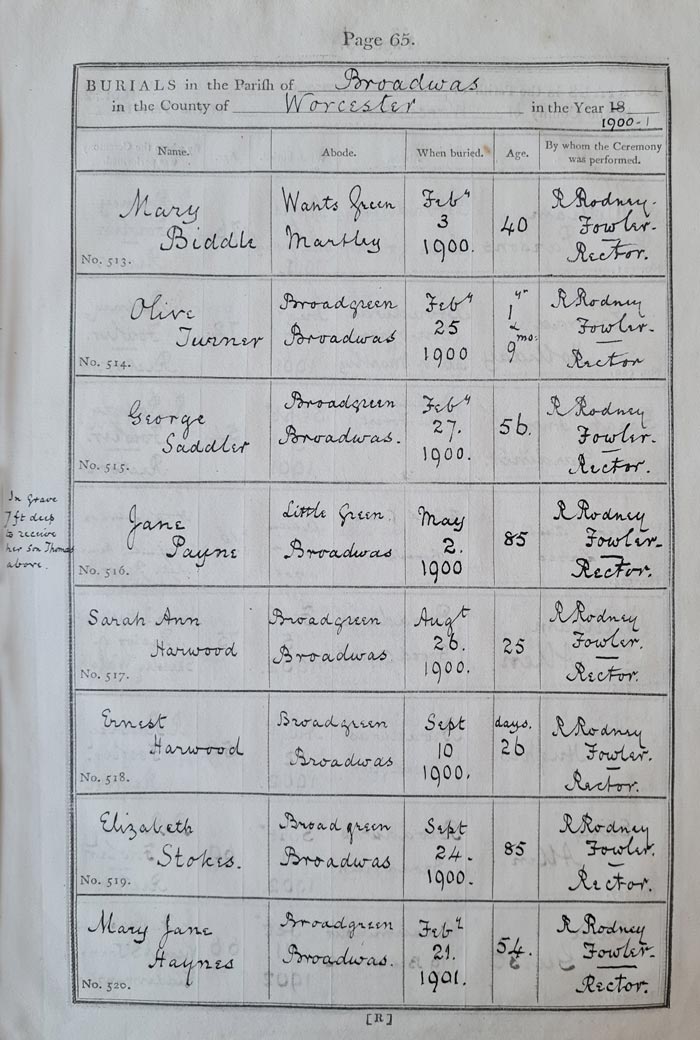 Page 65.
BURIALS in the Parish of Broadwas
in the County of Worcester in the Year 18
1900-1
Name. Abode. When buried. Age. By whom the Ceremony was performed.
Mary Biddle
No. 513.
Wants Green
Martley
Feby
3
1900.
40
R Rodney
Fowler.
Rector.
Olive
Turner
No. 514.
Broadgreen
Broadwas
Feby
25
1900
1 yr
&
9 mo:
R Rodney
Fowler.
Rector
George
Saddler
No. 515.
Broadgreen
Broadwas.
Feby
27.
1900.
56.
R Rodney
Fowler.
Rector.
In grave
7 ft deep
to receive
her son Thomas
above.
Jane
Payne
No. 516.
Little Green
Broadwas
May
2.
1900
85
R Rodney
Fowler.
Rector.
Sarah Ann
Harwood
No. 517.
Broadgreen
Broadwas
Augt
26.
1900.
25
R Rodney
Fowler.
Rector.
Ernest
Harwood
No. 518.
Broadgreen
Broadwas
Sept
10
1900.
days.
26
R Rodney
Fowler.
Rector.
Elizabeth
Stokes.
No. 519.
Broadgreen
Broadwas
Sept
24.
1900.
85
R Rodney
Fowler.
Rector.
Mary Jane
Haynes
No. 520.
Broadgreen
Broadwas.
Feby
21.
1901.
54.
R Rodney
Fowler.
Rector.
[R]